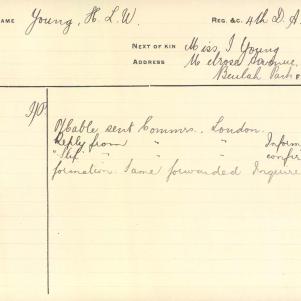 NAME Young, H. L. W. REG. &C. 4th D. A
NEXT OF KIN Miss. I Young
ADDRESS Melrose Avenue
Beulah Park
Cable sent Commrs., London.
Reply from " " Inform
" " " confir
formation. Same forwarded Inquire